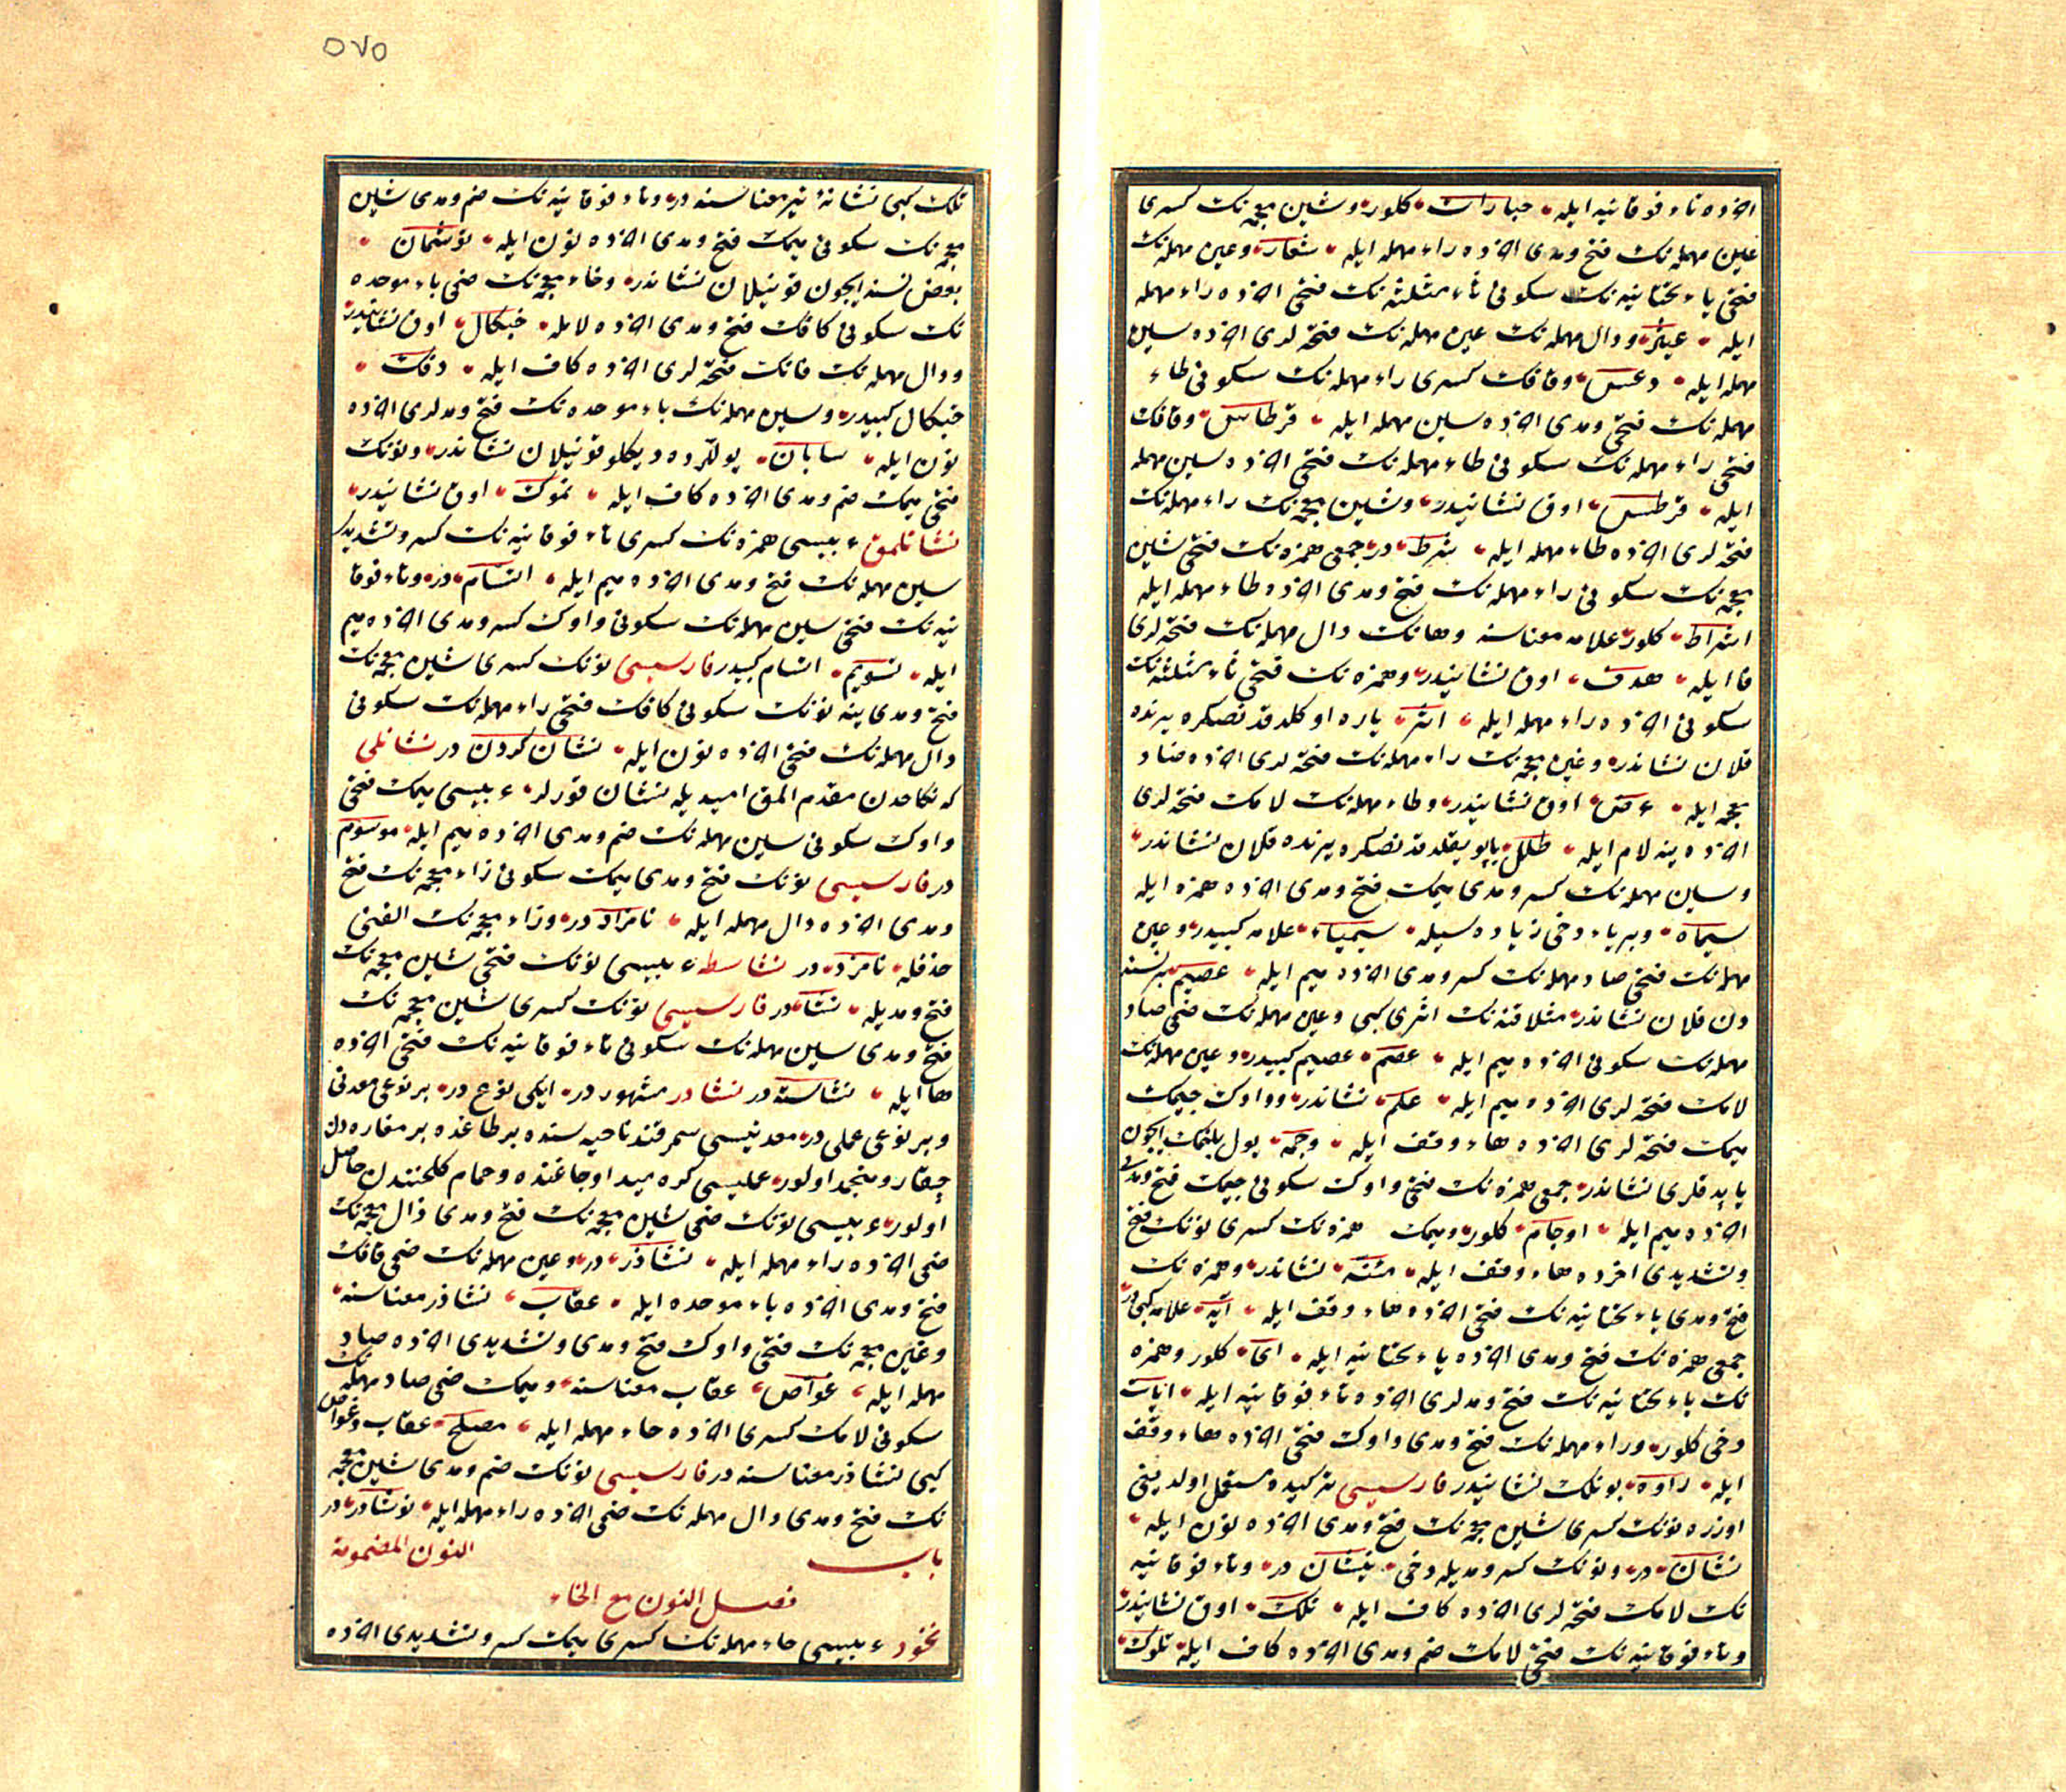 اخرده تاء فوقانیه ایله حبارات کلور و شین معجمه‌نک کسری
عین مهمله‌نک فتح و مدی اخرده راء مهمله ایله شعار و عین مهمله‌نک
فتحی یاء تحتانیه‌نک سکونی ثاء مثلثه‌نک فتحی اخرده راء مهمله
ایله عیثر و دال مهمله‌نک عین مهمله‌نک فتحه‌لری اخرده سین
مهمله ایله دعس و قافک کسری راء مهمله‌نک سکونی طاء
مهمله‌نک فتحی و مدی اخرده سین مهمله ایله قرطاس و قافک
فتحی راء مهمله‌نک سکونی طاء مهمله‌نک فتحی اخرده سین مهمله
ایله قرطس اوق نشانیدر و شین معجمه‌نک راء مهمله‌نک
فتحه‌لری اخرده طاء مهمله ایله شرط در جمعی همزه‌نک فتحی شین
معجمه‌نک سکونی راء مهمله‌نک فتح و مدی اخرده طاء مهمله ایله
اشراط کلور علامه معناسنه و هانک دال مهمله‌نک فتحه‌لری
فا ایله هدف اوق نشانیدر و همزه‌نک فتحی ثاء مثلثه‌نک
سکونی اخرده راء مهمله ایله اثر یاره اوکلدقدنصکره یرنده
قلان نشاندر و غین معجمه‌نک راء مهمله‌نک فتحه‌لری اخرده ضاد
معجمه ایله غرض اوق نشانیدر و طاء مهمله‌نک لامک فتحه‌لری
اخرده ینه لام ایله طلل یاپو یقلدقدنصکره یرنده قلان نشاندر
و سین مهمله‌نک کسر و مدی میمک فتح و مدی اخرده همزه ایله
سیماء و بر یاء دخی زیاده‌سیله سیمیاء علامه کبیدر و عین
مهمله‌نک فتحی صاد مهمله‌نک کسر و مدی اخرده میم ایله عصیم بر نسنه
دن قلان نشاندر مثلا قنه‌نک اثری کبی و عین مهمله‌نک ضمی صاد
مهمله‌نک سکونی اخرده میم ایله عصم عصیم کبیدر و عین مهمله‌نک
لامک فتحه‌لری اخرده میم ایله علم نشاندر و واوک جیمک
میمک فتحه‌لری اخرده هاء وقف ایله وجمه یول بلنمک ایچون
یاپدقلری نشاندر جمعی همزه‌نک فتحی واوک سکونی جیمک فتح و مدی
اخرده میم ایله اوجام کلور و میمک همزه‌نک کسری نونک فتح
و تشدیدی اخرده هاء وقف ایله مئنه نشاندر و همزه‌نک
فتح و مدی یاء تحتانیه‌نک فتحی اخرده هاء وقف ایله آیه علامه کبیدر
جمعی همزه‌نک فتح و مدی اخرده یاء تحتانیه ایله آی کلور و همزه
نک یاء تحتانیه‌نک فتح و مدلری اخرده تاء فوقانیه ایله ایات
دخی کلور و راء مهمله‌نک فتح و مدی واوک فتحی اخرده هاء وقف
ایله راوه بونلک نشانیدر فارسیسی ترکیده مستعمل اولدیغی
اوزره نونک کسری شین معجمه‌نک فتح و مدی اخرده نون ایله
نشان در و نونک کسر و مدیله دخی نیشان در و تاء فوقانیه
نک لامک فتحه‌لری اخرده کاف ایله تلک اوق نشانیدر
و تاء فوقانیه‌نک فتحی لامک ضم و مدی اخرده کاف ایله تلوک
٥٧٥
تلک کبی نشانهٔ تیر معناسنه در و تاء فوقانیه‌نک ضم و مدی شین
معجمه‌نک سکونی میمک فتح و مدی اخرده نون ایله توشمان
بعض نسنه ایچون قونیلان نشاندر و خاء معجمه‌نک ضمی باء موحده
نک سکونی کافک فتح و مدی اخرده لامله خبکال اوق نشانیدر
و دال مهمله‌نک فانک فتحه‌لری اخرده کاف ایله دفک
خبکال کبیدر و سین مهمله‌نک باء موحده‌نک فتح و مدلری اخرده
نون ایله سابان یوللرده دیکلو قونیلان نشاندر و نونک
فتحی میمک ضم و مدی اخرده کاف ایله نموک اوق نشانیدر
نشانلمق عربیسی همزه‌نک کسری تاء فوقانیه‌نک کسر و تشدیدی
سین مهمله‌نک فتح و مدی اخرده میم ایله اتسام در و تاء فوقا
نیه‌نک فتحی سین مهمله‌نک سکونی واوک کسر و مدی اخرده میم
ایله تسویم اتسام کبیدر فارسیسی نونک کسری شین معجمه‌نک
فتح و مدی ینه نونک سکونی کافک فتحی راء مهمله‌نک سکونی
دال مهمله‌نک فتحی اخرده نون ایله نشان کردن در نشانلی
که نکاحدن مقدم المق امیدیله نشان قورلر عربیسی میمک فتحی
واوک سکونی سین مهمله‌نک ضم و مدی اخرده میم ایله موسوم
در فارسیسی نونک فتح و مدی میمک سکونی زاء معجمه‌نک فتح
و مدی اخرده دال مهمله ایله نامزاد در و زاء معجمه‌نک الفنی
حذفله نامزد در نشاسطه عربیسی نونک فتحی شین معجمه‌نک
فتح و مدیله نشا در فارسیسی نونک کسری شین معجمه‌نک
فتح و مدی سین مهمله‌نک سکونی تاء فوقانیه‌نک فتحی اخرده
ها ایله نشاسته در نشادر مشهور در ایکی نوع در بر نوعی معدنی
و بر نوعی عملی در معدنیسی سمرقند ناحیه‌سنده بر طاغده بر مغاره‌دن
چیقار و منجمد اولور عملیسی کره‌مید اوجاغنده و حمام کلخنندن حاصل
اولور عربیسی نونک ضمی شین معجمه‌نک فتح و مدی ذال معجمه‌نک
ضمی اخرده راء مهمله ایله نشاذر در و عین مهمله‌نک ضمی قافک
فتح و مدی اخرده باء موحده ایله عقاب نشاذر معناسنه
و غین معجمه‌نک فتحی واوک فتح و مدی و تشدیدی اخرده صاد
مهمله ایله غواص عقاب معناسنه و میمک ضمی صاد مهمله‌نک
سکونی لامک کسری اخرده حاء مهمله ایله مصلح عقاب و غواص
کبی نشاذر معناسنه در فارسیسی نونک ضم و مدی شین معجمه
نک فتح و مدی دال مهمله‌نک ضمی اخرده راء مهمله ایله نوشادر در
باب النون المضمومة
فصل النون مع الخاء
نخود عربیسی حاء مهمله‌نک کسری میمک کسر و تشدیدی اخرده